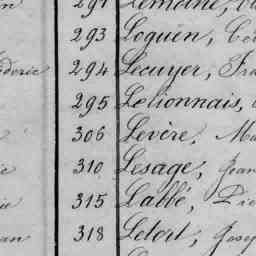 291 Lemoine,
293 Loquen,
294 Lecuyer, Fra
295 Lelionnais,
306 Levère, Ma
310 Lesage, Jean
315 Labbé, Pie
318 Letort, Josep